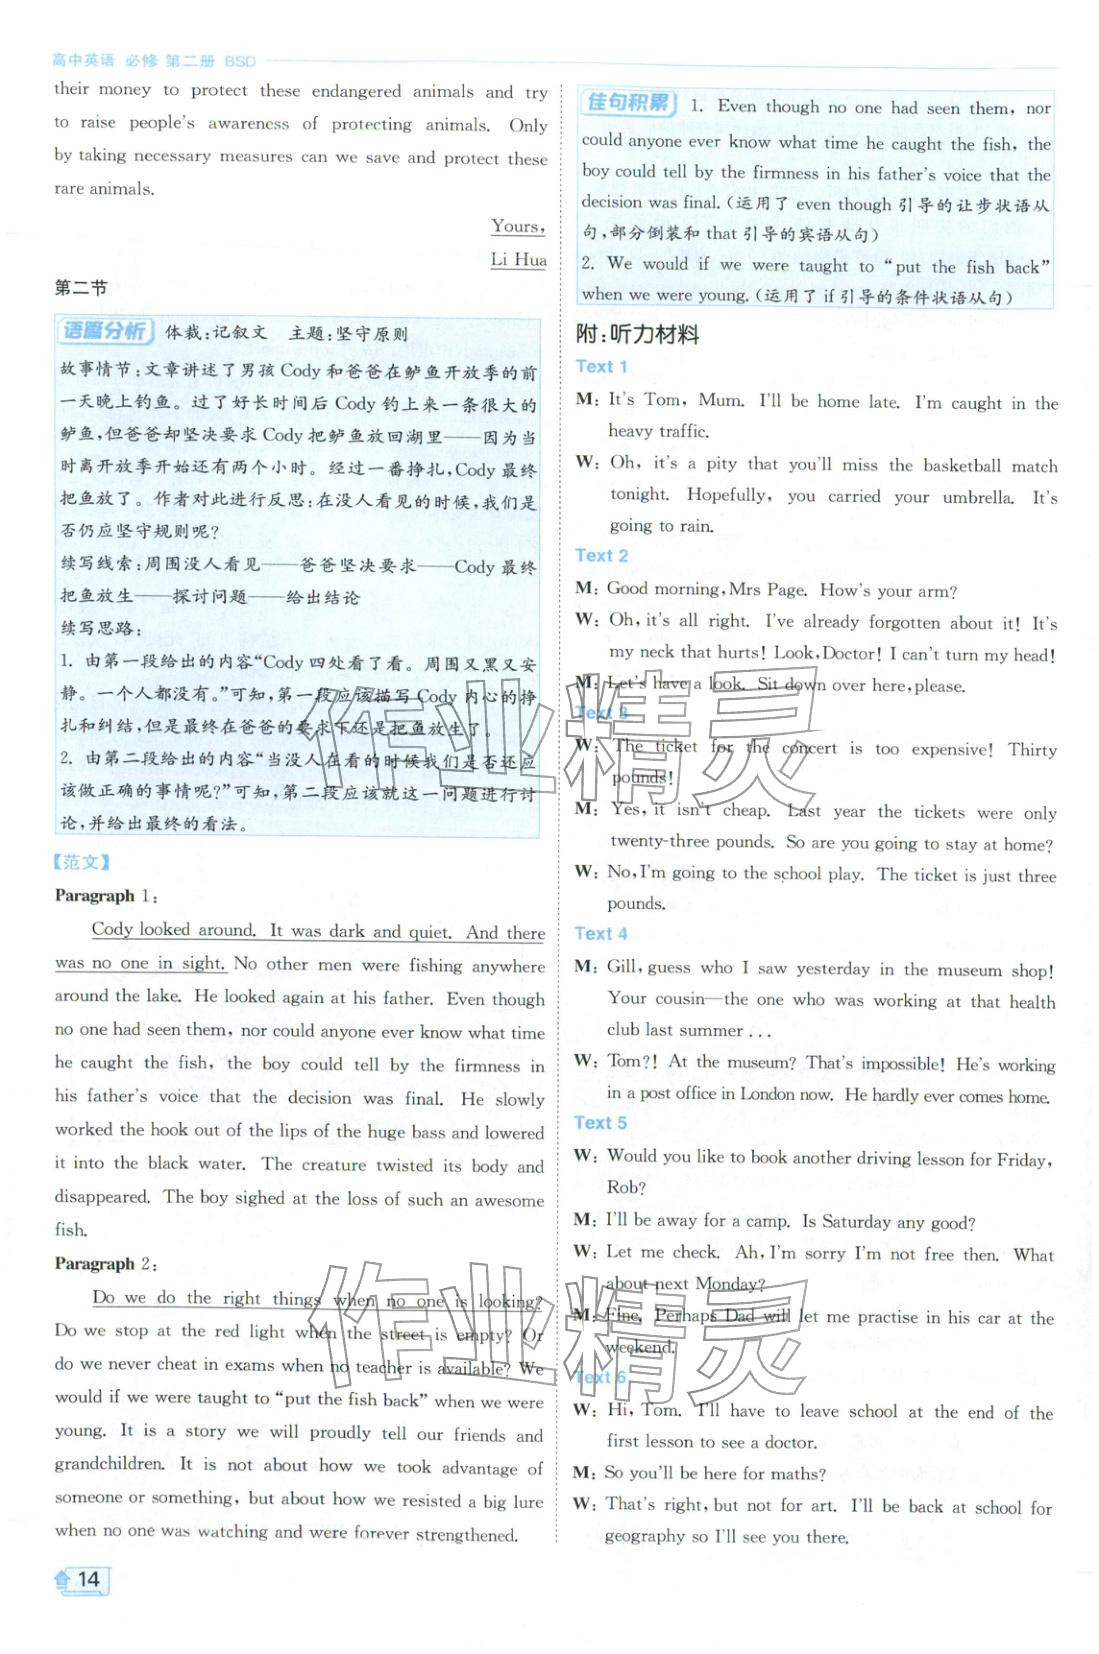 高中英语 必修 第二册 BSD
their money to protect these endangered animals and try
to raise people's awareness of protecting animals. Only
by taking necessary measures can we save and protect these
rare animals.
Yours,
Li Hua
第二节
语篇分析 体裁:记叙文 主题:坚守原则
故事情节:文章讲述了男孩 Cody 和爸爸在鲈鱼开放季的前
一天晚上钓鱼。过了好长时间后 Cody 钓上来一条很大的
鲈鱼,但爸爸却坚决要求 Cody 把鲈鱼放回湖里——因为当
时离开放季开始还有两个小时。经过一番挣扎,Cody 最终
把鱼放了。作者对此进行反思:在没人看见的时候,我们是
否仍应坚守规则呢?
续写线索:周围没人看见——爸爸坚决要求——Cody 最终
把鱼放生——探讨问题——给出结论
续写思路:
1. 由第一段给出的内容“Cody 四处看了看。周围又黑又安
静。一个人都没有。”可知,第一段应该描写 Cody 内心的挣
扎和纠结,但是最终在爸爸的要求下还是把鱼放生了。
2. 由第二段给出的内容“当没人在看的时候我们是否还应
该做正确的事情呢?”可知,第二段应该就这一问题进行讨
论,并给出最终的看法。
【范文】
Paragraph 1:
Cody looked around. It was dark and quiet. And there
was no one in sight. No other men were fishing anywhere
around the lake. He looked again at his father. Even though
no one had seen them, nor could anyone ever know what time
he caught the fish, the boy could tell by the firmness in
his father's voice that the decision was final. He slowly
worked the hook out of the lips of the huge bass and lowered
it into the black water. The creature twisted its body and
disappeared. The boy sighed at the loss of such an awesome
fish.
Paragraph 2:
Do we do the right things when no one is looking?
Do we stop at the red light when the street is empty? Or
do we never cheat in exams when no teacher is available? We
would if we were taught to “put the fish back” when we were
young. It is a story we will proudly tell our friends and
grandchildren. It is not about how we took advantage of
someone or something, but about how we resisted a big lure
when no one was watching and were forever strengthened.
14
佳句积累 1. Even though no one had seen them, nor
could anyone ever know what time he caught the fish, the
boy could tell by the firmness in his father's voice that the
decision was final.(运用了 even though 引导的让步状语从
句,部分倒装和 that 引导的宾语从句)
2. We would if we were taught to “put the fish back”
when we were young.(运用了 if 引导的条件状语从句)
附:听力材料
Text 1
M: It's Tom, Mum. I'll be home late. I'm caught in the
heavy traffic.
W: Oh, it's a pity that you'll miss the basketball match
tonight. Hopefully, you carried your umbrella. It's
going to rain.
Text 2
M: Good morning, Mrs Page. How's your arm?
W: Oh, it's all right. I've already forgotten about it! It's
my neck that hurts! Look, Doctor! I can't turn my head!
M: Let's have a look. Sit down over here, please.
Text 3
W: The ticket for the concert is too expensive! Thirty
pounds!
M: Yes, it isn't cheap. Last year the tickets were only
twenty-three pounds. So are you going to stay at home?
W: No, I'm going to the school play. The ticket is just three
pounds.
Text 4
M: Gill, guess who I saw yesterday in the museum shop!
Your cousin—the one who was working at that health
club last summer ...
W: Tom?! At the museum? That's impossible! He's working
in a post office in London now. He hardly ever comes home.
Text 5
W: Would you like to book another driving lesson for Friday,
Rob?
M: I'll be away for a camp. Is Saturday any good?
W: Let me check. Ah, I'm sorry I'm not free then. What
about next Monday?
M: Fine. Perhaps Dad will let me practise in his car at the
weekend.
Text 6
W: Hi, Tom. I'll have to leave school at the end of the
first lesson to see a doctor.
M: So you'll be here for maths?
W: That's right, but not for art. I'll be back at school for
geography so I'll see you there.
作业精灵
作业精灵